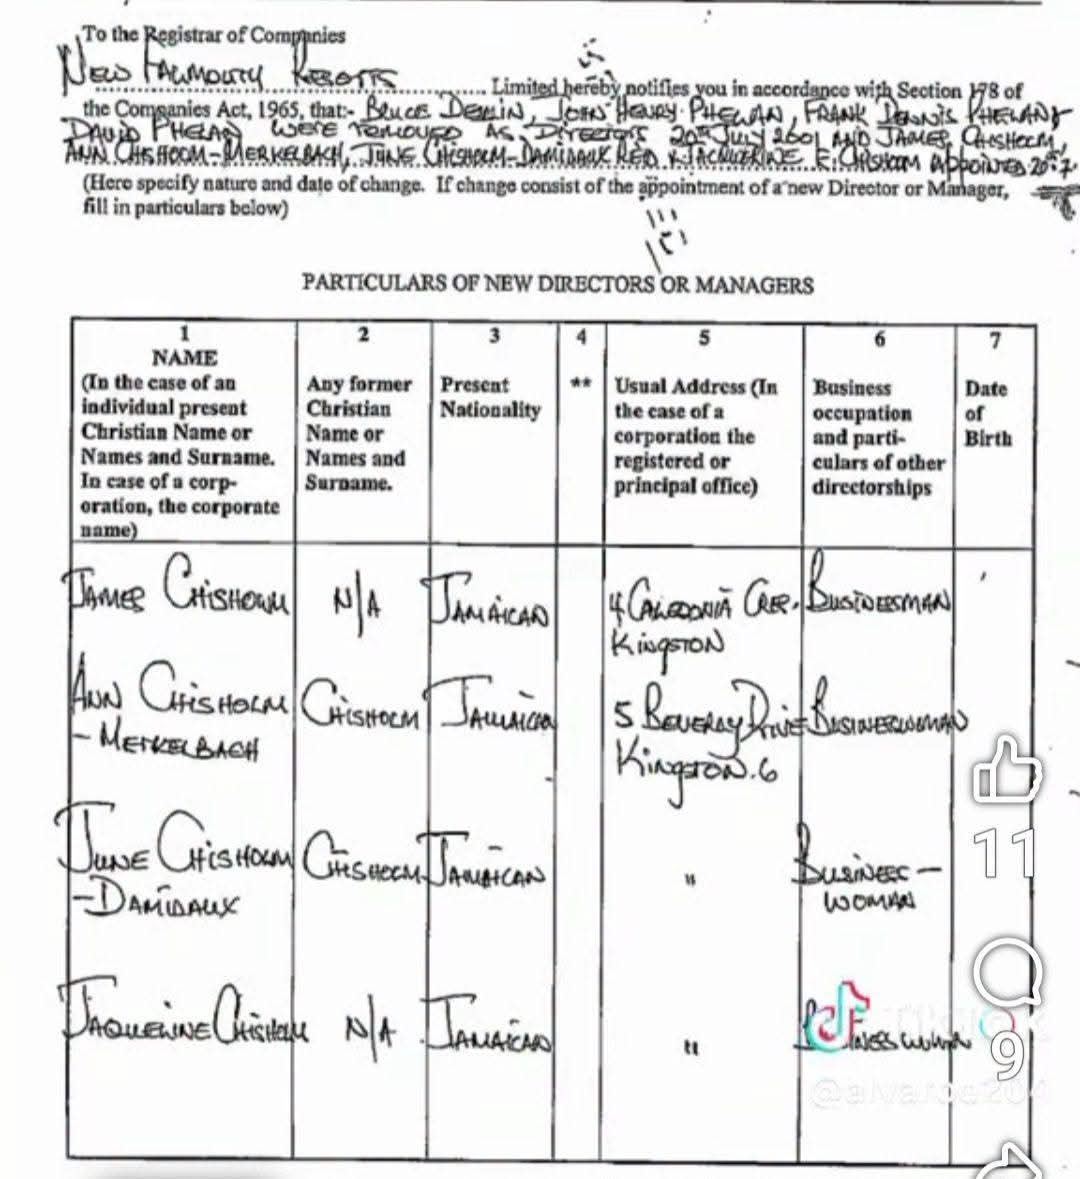 To the Registrar of Companies
NEW FALMOUTH RESORTS Limited hereby notifies you in accordance with Section 178 of
the Companies Act, 1965, that:- BRUCE DEVLIN, JOHN HENRY PHELAN, FRANK DENNIS PHELAN &
DAVID PHELAN WERE REMOVED AS DIRECTORS 20TH JULY 2001 AND JAMES CHISHOLM,
ANN CHISHOLM-MERKELBACH, JUNE CHISHOLM-DAMIDAUX & JACQUELINE CHISHOLM APPOINTED 20.7
(Here specify nature and date of change. If change consist of the appointment of a new Director or Manager,
fill in particulars below)
PARTICULARS OF NEW DIRECTORS OR MANAGERS
1
NAME
(In the case of an
individual present
Christian Name or
Names and Surname.
In case of a corp-
oration, the corporate
name)
2
Any former
Christian
Name or
Names and
Surname.
3
Present
Nationality
4
**
5
Usual Address (In
the case of a
corporation the
registered or
principal office)
6
Business
occupation
and parti-
culars of other
directorships
7
Date
of
Birth
JAMES CHISHOLM N/A JAMAICAN 4 CALEDONIA CRES. BUSINESSMAN
KINGSTON
ANN CHISHOLM CHISHOLM JAMAICAN 5 BEVERLY DRIVE BUSINESSWOMAN
- MERKELBACH KINGSTON.6
JUNE CHISHOLM CHISHOLM JAMAICAN " BUSINESS-
-DAMIDAUX WOMAN
JAQUELINE CHISHOLM N/A JAMAICAN " BUSINESSWOMAN
11
9
TikTok